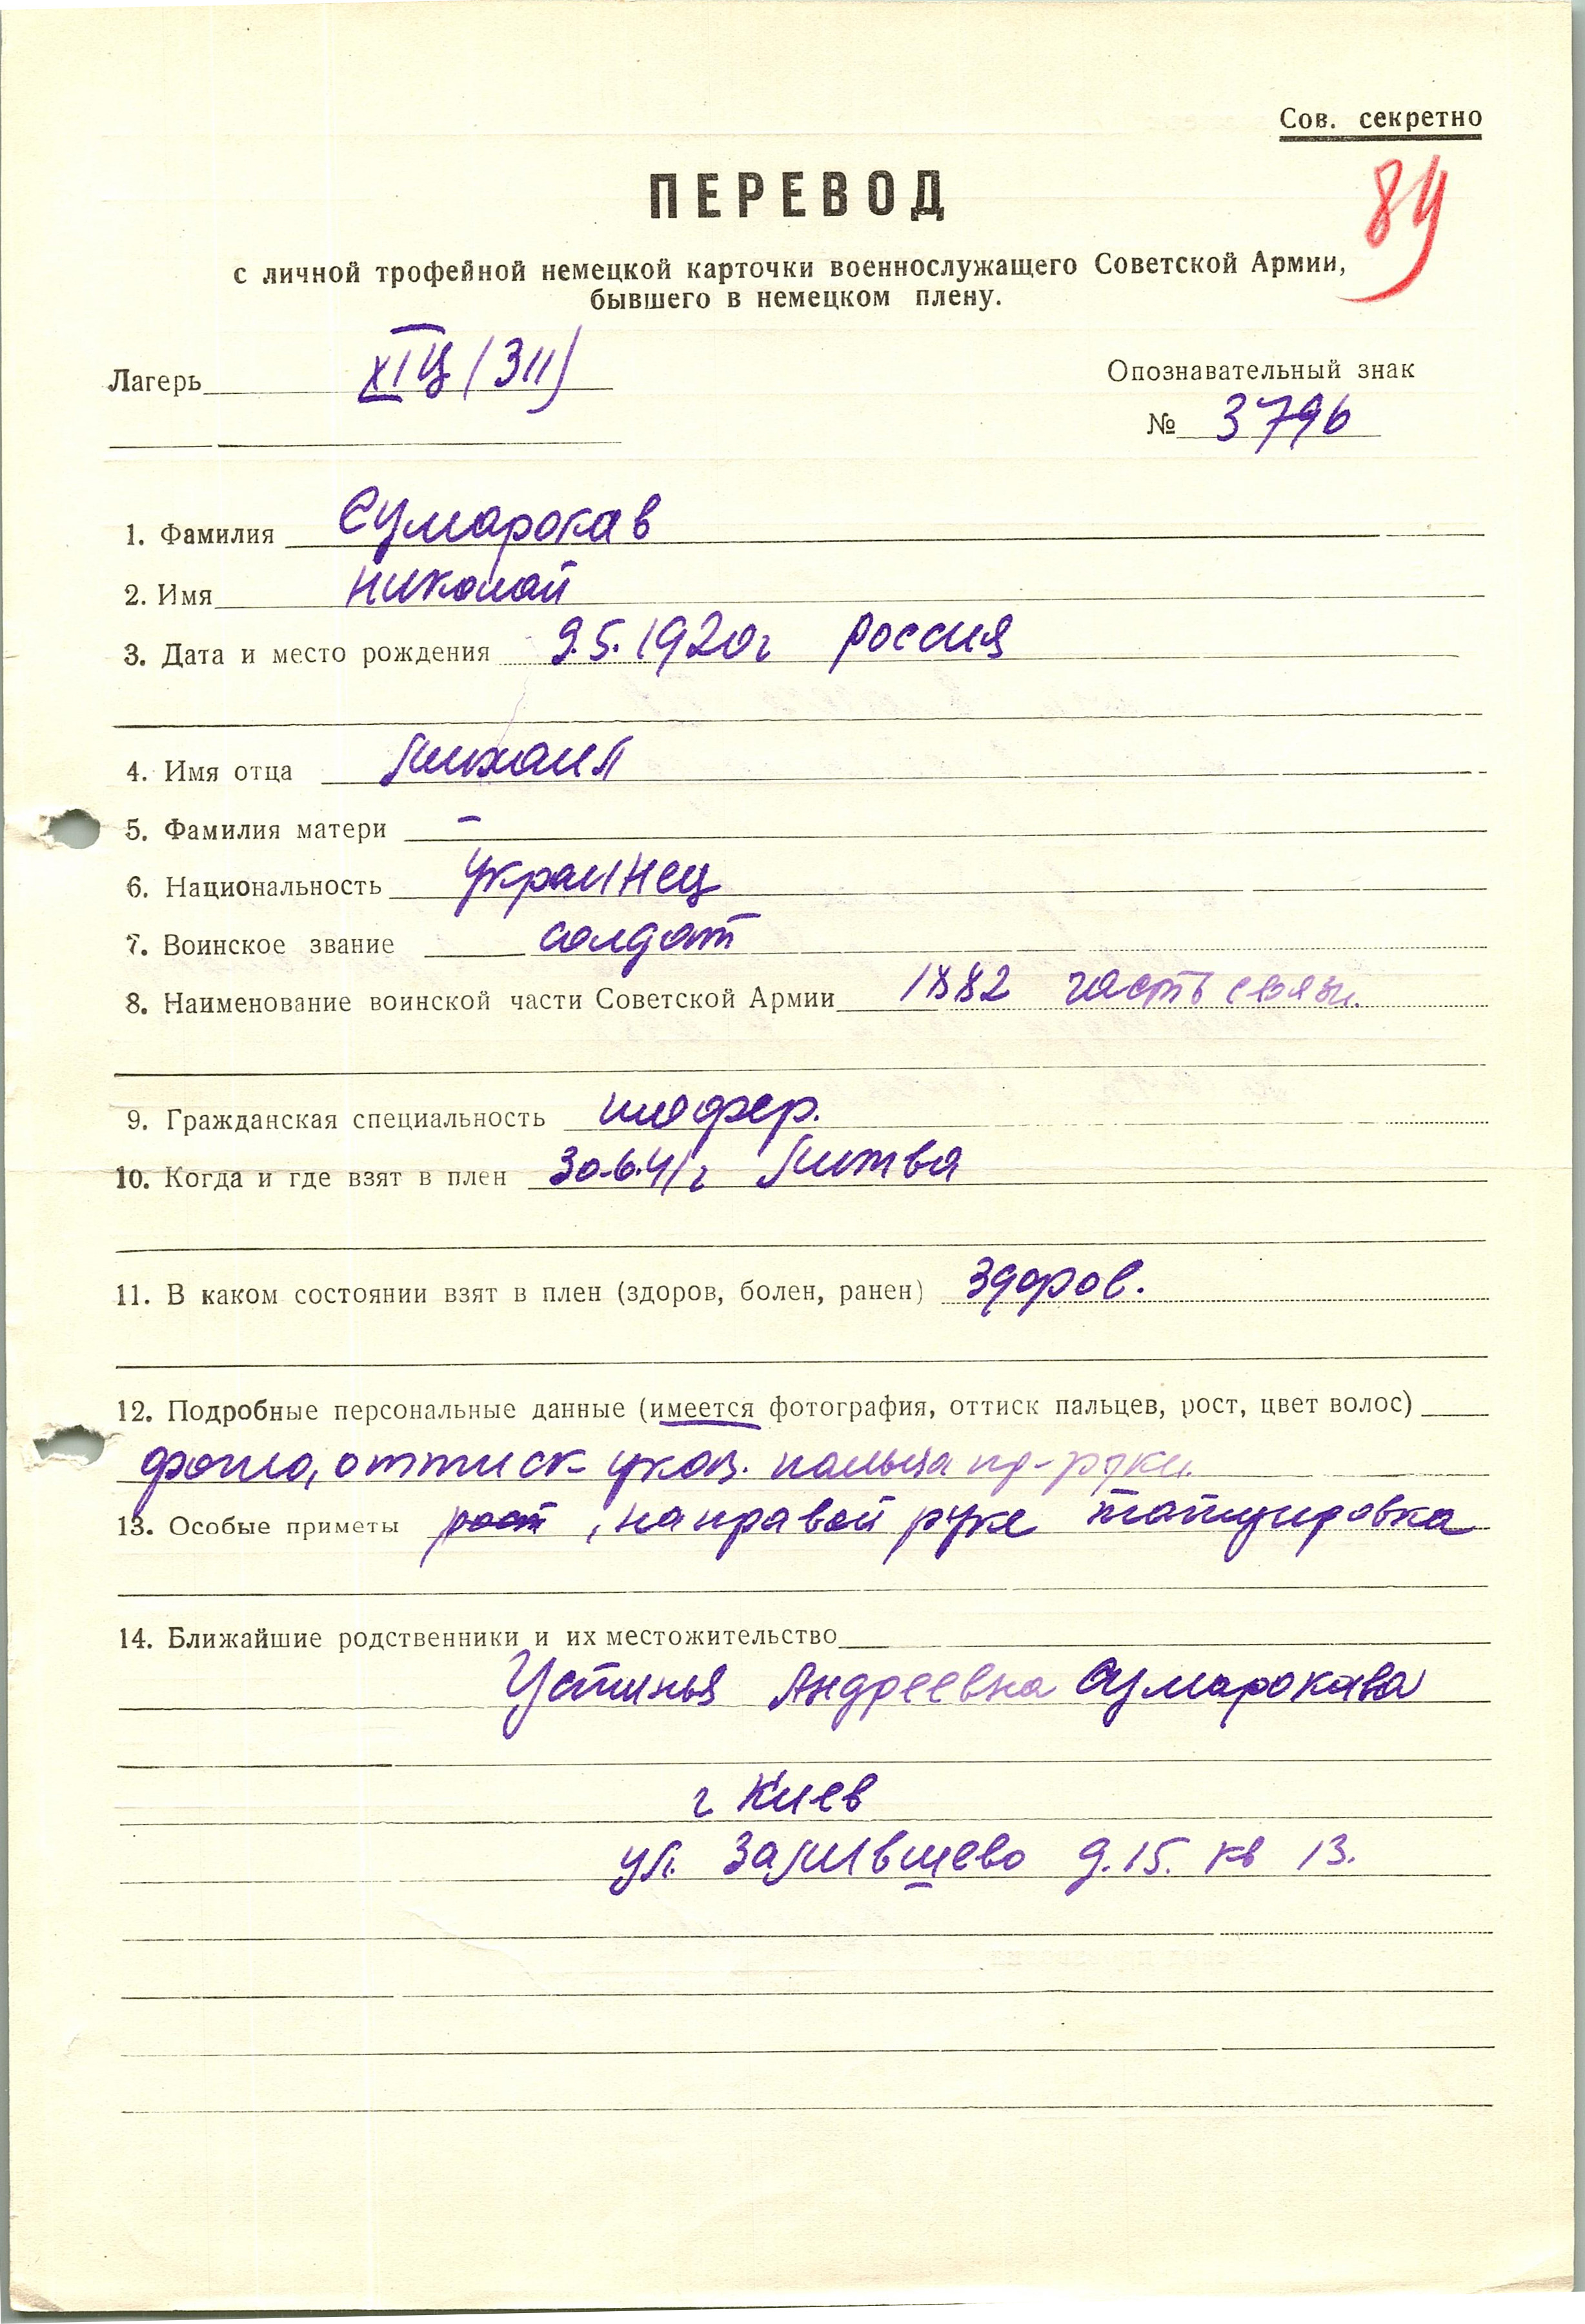 Сов. секретно
84
ПЕРЕВОД
с личной трофейной немецкой карточки военнослужащего Советской Армии,
бывшего в немецком плену.
Лагерь XIЦ (311)
Опознавательный знак
№ 3796
1. Фамилия Сумарокав
2. Имя Николай
3. Дата и место рождения 9.5.1920г Россия
4. Имя отца Михаил
5. Фамилия матери –
6. Национальность Украинец
7. Воинское звание солдат
8. Наименование воинской части Советской Армии 1882 часть связи.
9. Гражданская специальность шофер.
10. Когда и где взят в плен 30.6.41г Литва
11. В каком состоянии взят в плен (здоров, болен, ранен) Здоров.
12. Подробные персональные данные (имеется фотография, оттиск пальцев, рост, цвет волос)
фото, оттиск указ. пальца пр-руки.
13. Особые приметы рост, на правой руке татуировка
14. Ближайшие родственники и их местожительство
Устинья Андреевна Сумарокава
г Киев
ул. д. 15. кв 13.